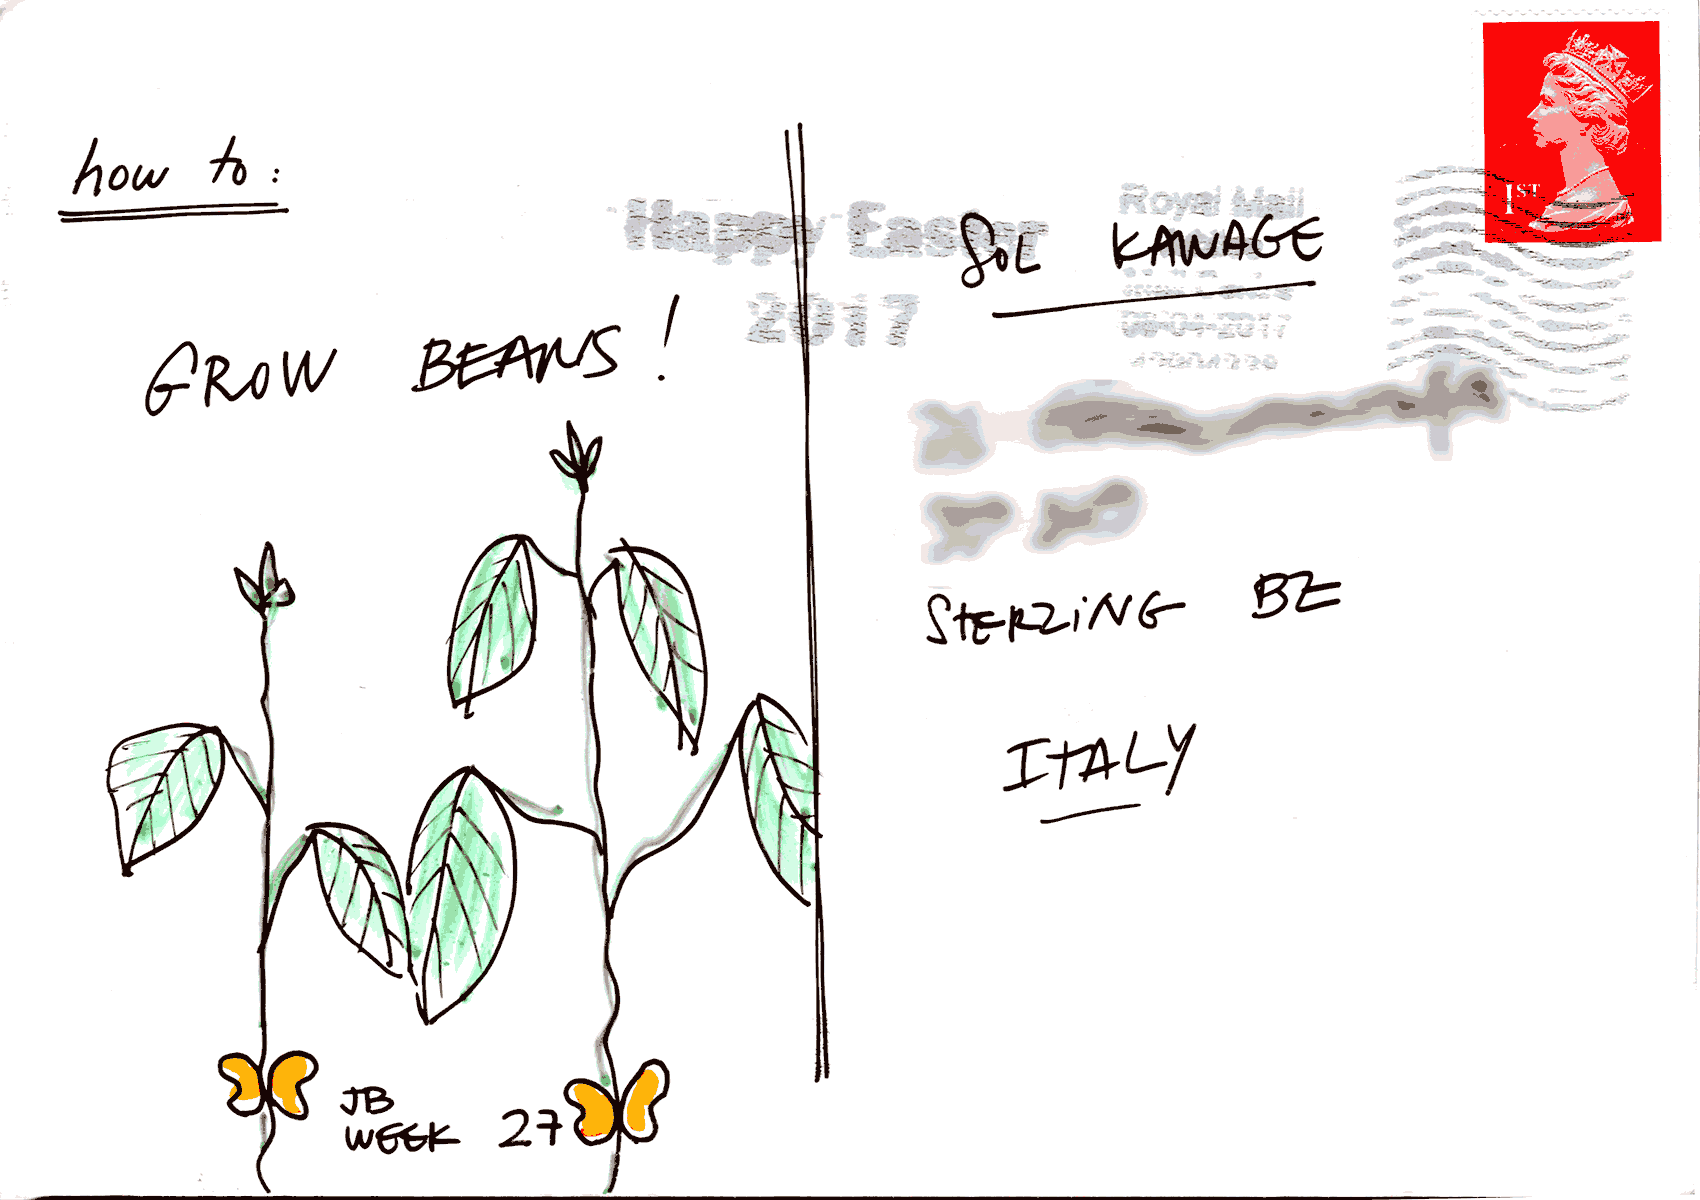 how to:
GROW BEANS!
JB
WEEK 27
Happy Easter
2017
Royal Mail
1ST
SOL KAWAGE
STERZING BZ
ITALY